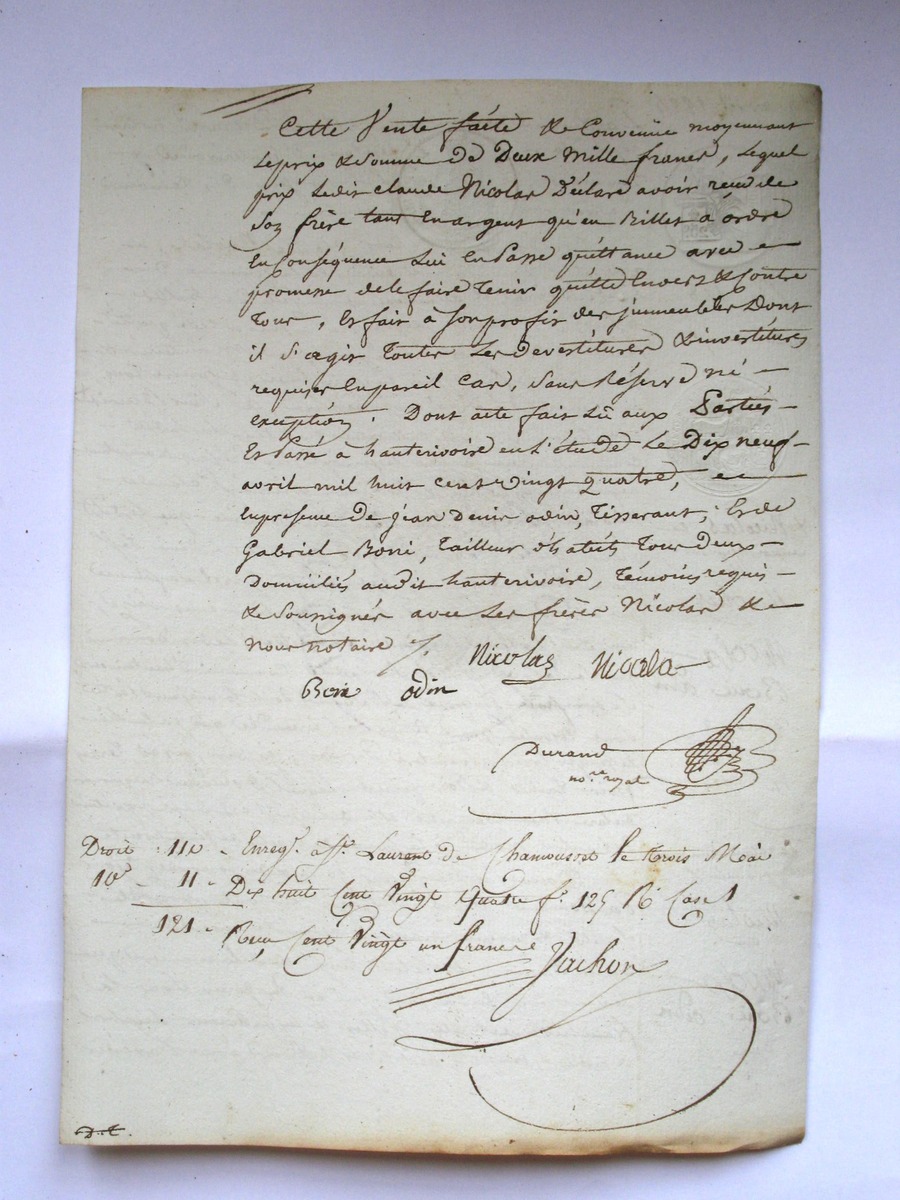 Cette Vente faéte & Convenüe moyennant
Le prix & Somme de Deux mille francs, Lequel
prix Ledit claude Nicolas Déclaré avoir reçu de
Son frère tant En argent qu'en Billet à órdre
En Conséquence Lui En Passe quéttance avec
promesse de le faire tenir quétte Envers & Contre
tous, Et fait à Son profit des jmmeubles Dont
il S'agit toutes Les devestitures & investitures
requises En pareil Cas, Sans Réserve ni
exception. Dont acte fait Lû aux Parties
Et Passé à hauterivoire en L'étude Le Dix neuf
avril mil huit cent vingt quatre,
En présence De Jean Denis odin, tisserant, Et de
Gabriel Boni, tailleur d'habits tous deux
Domiciliés audit hauterivoire, témoins requis
& Soussignés avec Les frères Nicolas &
Nous notaire ./.
Nicolas Nicola
Boni odin
Durand
no.re royal
Droit : 110 - Enreg. à St. Laurent de Chamousset le trois Mai
10e - 11 - Dix huit Cent Vingt Quatre fo. 125 Ro. Case 1
121 - Reçu Cent Vingt un francs
Jachon
D.t.